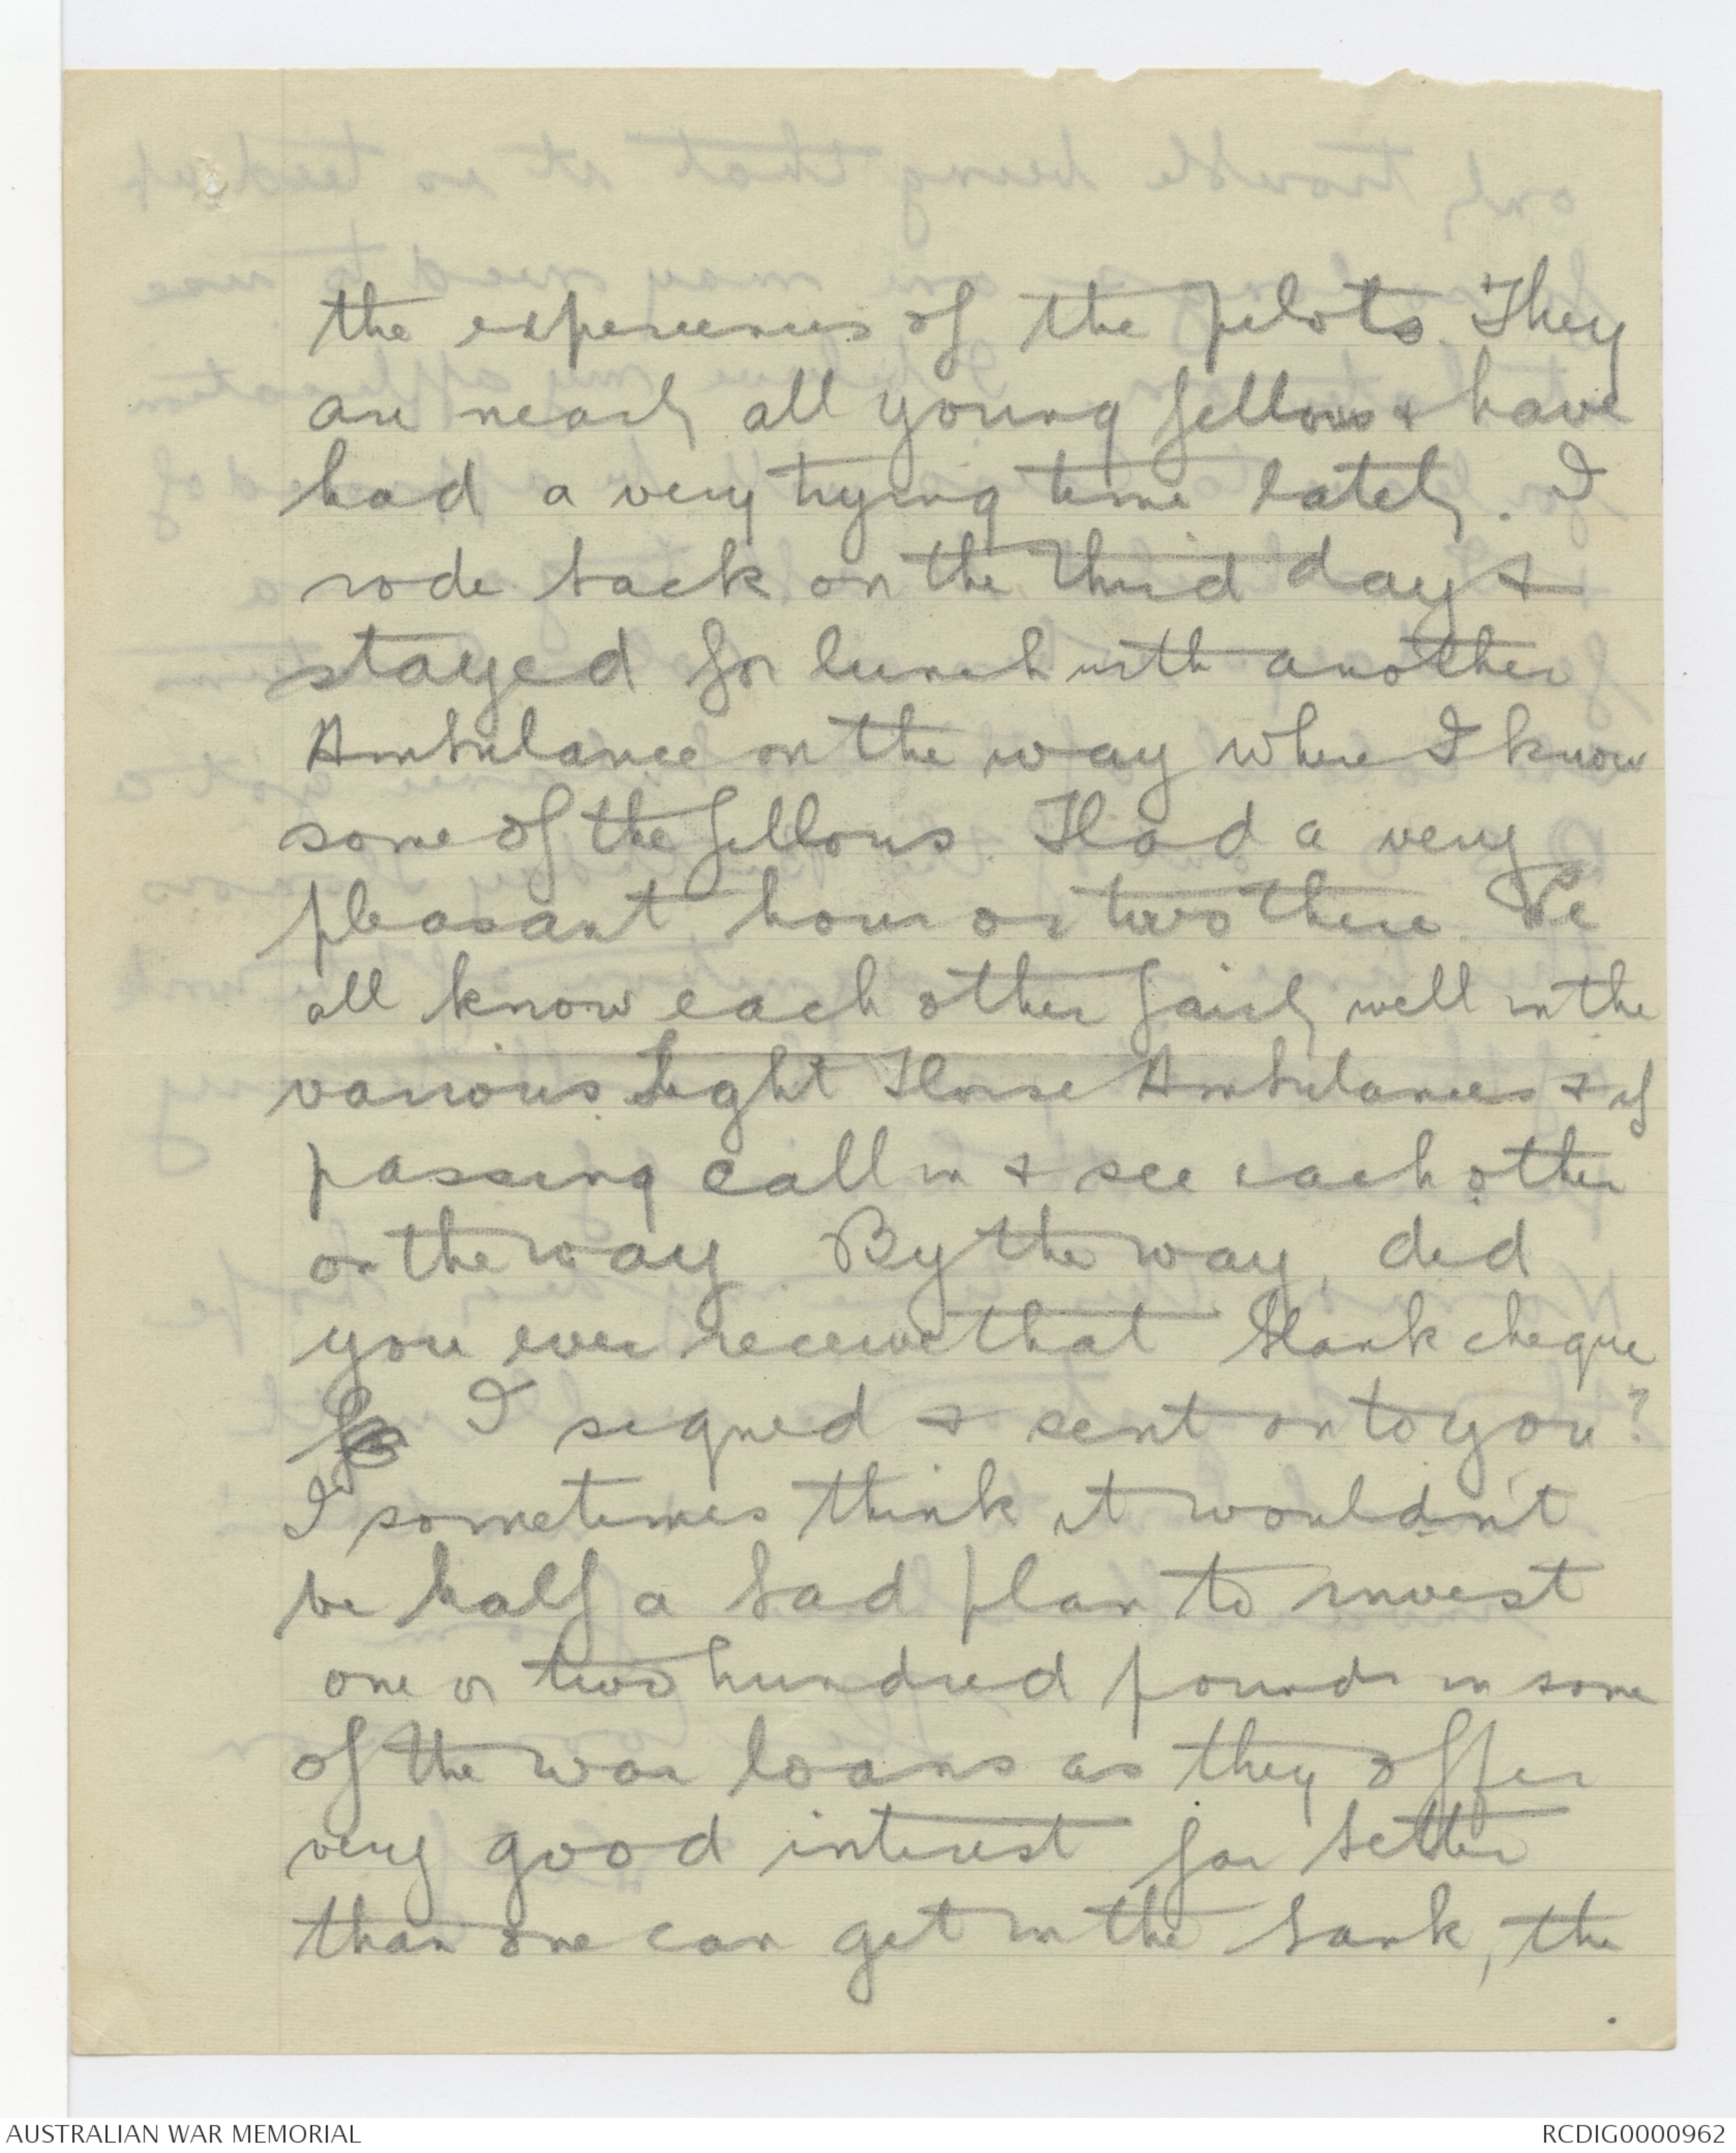 the experiences of the pilots. They
are nearly all young fellows & have
had a very trying time lately. I
rode back on the third day &
stayed for lunch with another
Ambulance on the way where I know
some of the fellows. Had a very
pleasant hour or two there. We
all know each other fairly well in the
various Light Horse Ambulances & if
passing call in & see each other
on the way. By the way, did
you ever receive that blank cheque
I signed & sent on to you?
I sometimes think it wouldn't
be half a bad plan to invest
one or two hundred pounds in some
of the war loans as they offer
very good interest far better
than one can get in the bank, the
AUSTRALIAN WAR MEMORIAL
RCDIG0000962